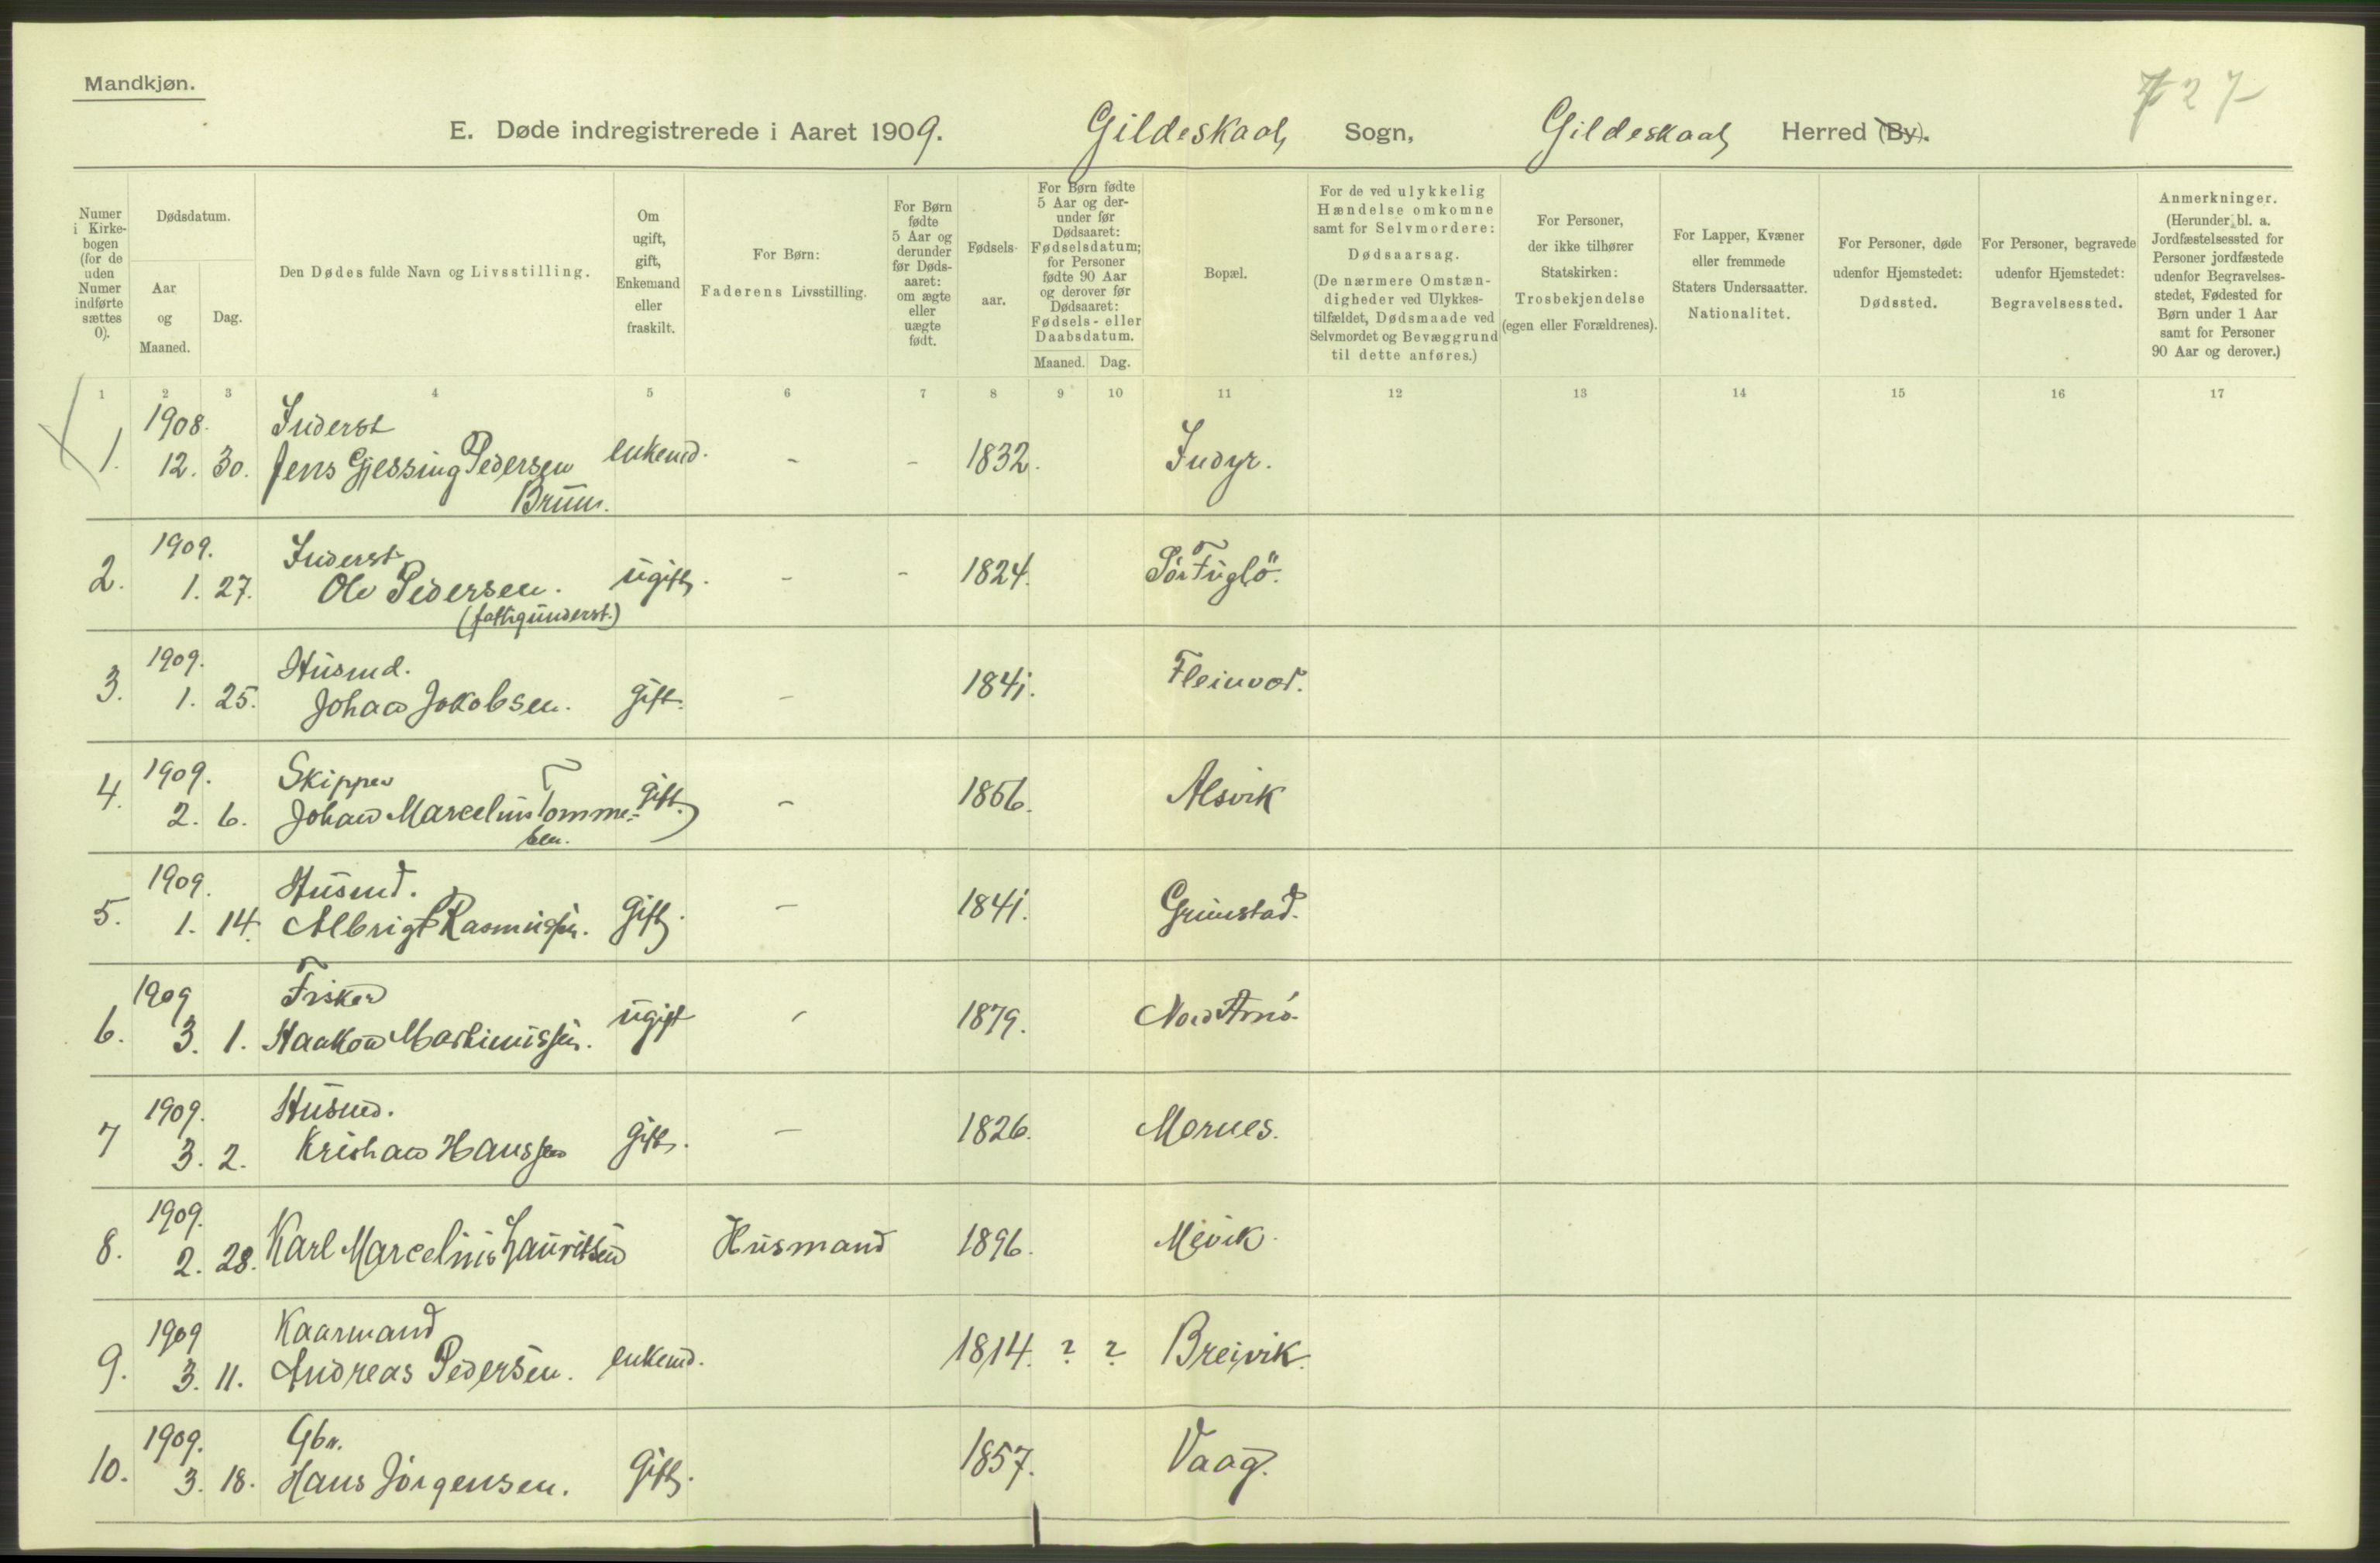 Mandkjøn.
727
E. Døde indregistrerede i Aaret 1909. Gildeskaal Sogn, Gildeskaal Herred (By).
Numer i Kirkebogen (for de uden Numer indførte sættes 0).
Dødsdatum.
Aar og Maaned.
Dag.
Den Dødes fulde Navn og Livsstilling.
Om ugift, gift, Enkemand eller fraskilt.
For Børn: Faderens Livsstilling.
For Børn fødte 5 Aar og derunder før Dødsaaret: om ægte eller uægte født.
Fødselsaar.
For Børn fødte 5 Aar og derunder før Dødsaaret: Fødselsdatum; for Personer fødte 90 Aar og derover før Dødsaaret: Fødsels- eller Daabsdatum.
Maaned. Dag.
Bopæl.
For de ved ulykkelig Hændelse omkomne samt for Selvmordere: Dødsaarsag. (De nærmere Omstændigheder ved Ulykkestilfældet, Dødsmaade ved Selvmordet og Bevæggrund til dette anføres.)
For Personer, der ikke tilhører Statskirken: Trosbekjendelse (egen eller Forældrenes).
For Lapper, Kvæner eller fremmede Staters Undersaatter. Nationalitet.
For Personer, døde udenfor Hjemstedet: Dødssted.
For Personer, begravede udenfor Hjemstedet: Begravelsessted.
Anmerkninger. (Herunder bl. a. Jordfæstelsessted for Personer jordfæstede udenfor Begravelsesstedet, Fødested for Børn under 1 Aar samt for Personer 90 Aar og derover.)
1 2 3 4 5 6 7 8 9 10 11 12 13 14 15 16 17
1908. Inderst
1. 12. 30. Jens Gjessing Pedersen enkemd. - - 1832. Indyr.
Bruun.
1909. Inderst
2. 1. 27. Ole Pedersen. ugift. - - 1824. Sør Fuglö.
(fattigunderst.)
1909. Husmd.
3. 1. 25. Johan Jakobsen. gift. - 1841. Fleinvær.
1909. Skipper
4. 2. 6. Johan Marcelius Tomme- gift. - 1856. Alsvik
sen.
1909. Husmd.
5. 1. 14. Albrigt Rasmussen. gift. - 1841. Grimstad.
1909 Fisker
6. 3. 1. Haakon Martinussen. ugift - 1879. Nord Arnö.
1909. Husmd.
7 3. 2. Kristian Hanssen gift. - 1826. Mornes.
1909.
8. 2. 28. Karl Marcelius Lauritsen Husmand 1896. Mevik.
1909 Kaarmand
9. 3. 11. Andreas Pedersen. enkemd. 1814. ? ? Breivik.
1909. Gbr.
10. 3. 18. Hans Jørgensen. gift. 1857. Vaag.